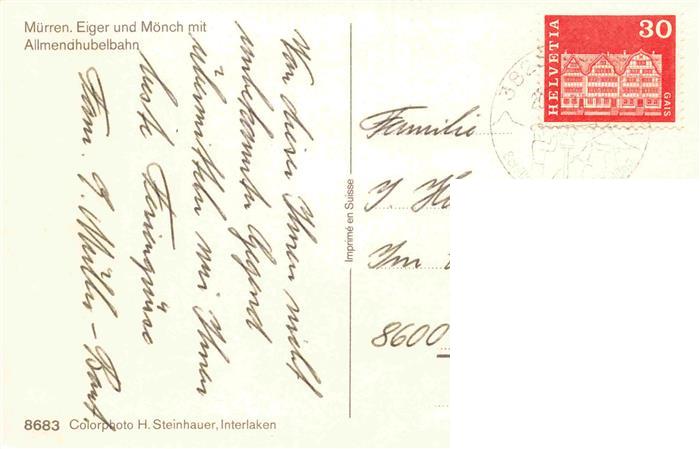 Mürren. Eiger und Mönch mit
Allmendhubelbahn
Von dieser Ihnen nicht
unbekannten Gegend
übermitteln wir Ihnen
beste Feriengrüsse
Fam. Müller-
8683 Colorphoto H. Steinhauer, Interlaken
Imprimé en Suisse
HELVETIA
30
GAIS
Familie
J.
Im
8600